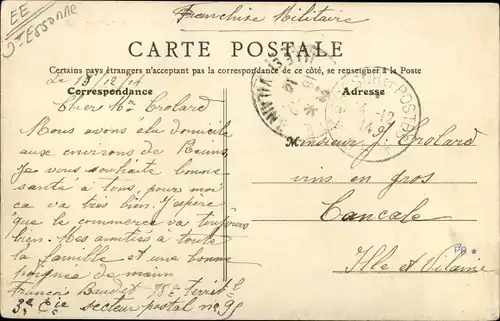 EE
Franchise Militaire
CARTE POSTALE
Certains pays étrangers n'acceptent pas la correspondance de ce côté, se renseigner à la Poste
Le 13/12/14
Correspondance
Adresse
Chers Mr Trolard
Nous avons élu domicile
aux environs de Reims,
Je vous souhaite bonne
santé à tous, pour moi
ça va très bien. J'espère
que le commerce va toujours
bien. Mes amitiés à toute
la famille et une bonne
poignée de main
François Baudet 78e territ
3e Cie secteur postal no 95
Monsieur J. Trolard
vins en gros
Cancale
Ille et Vilaine